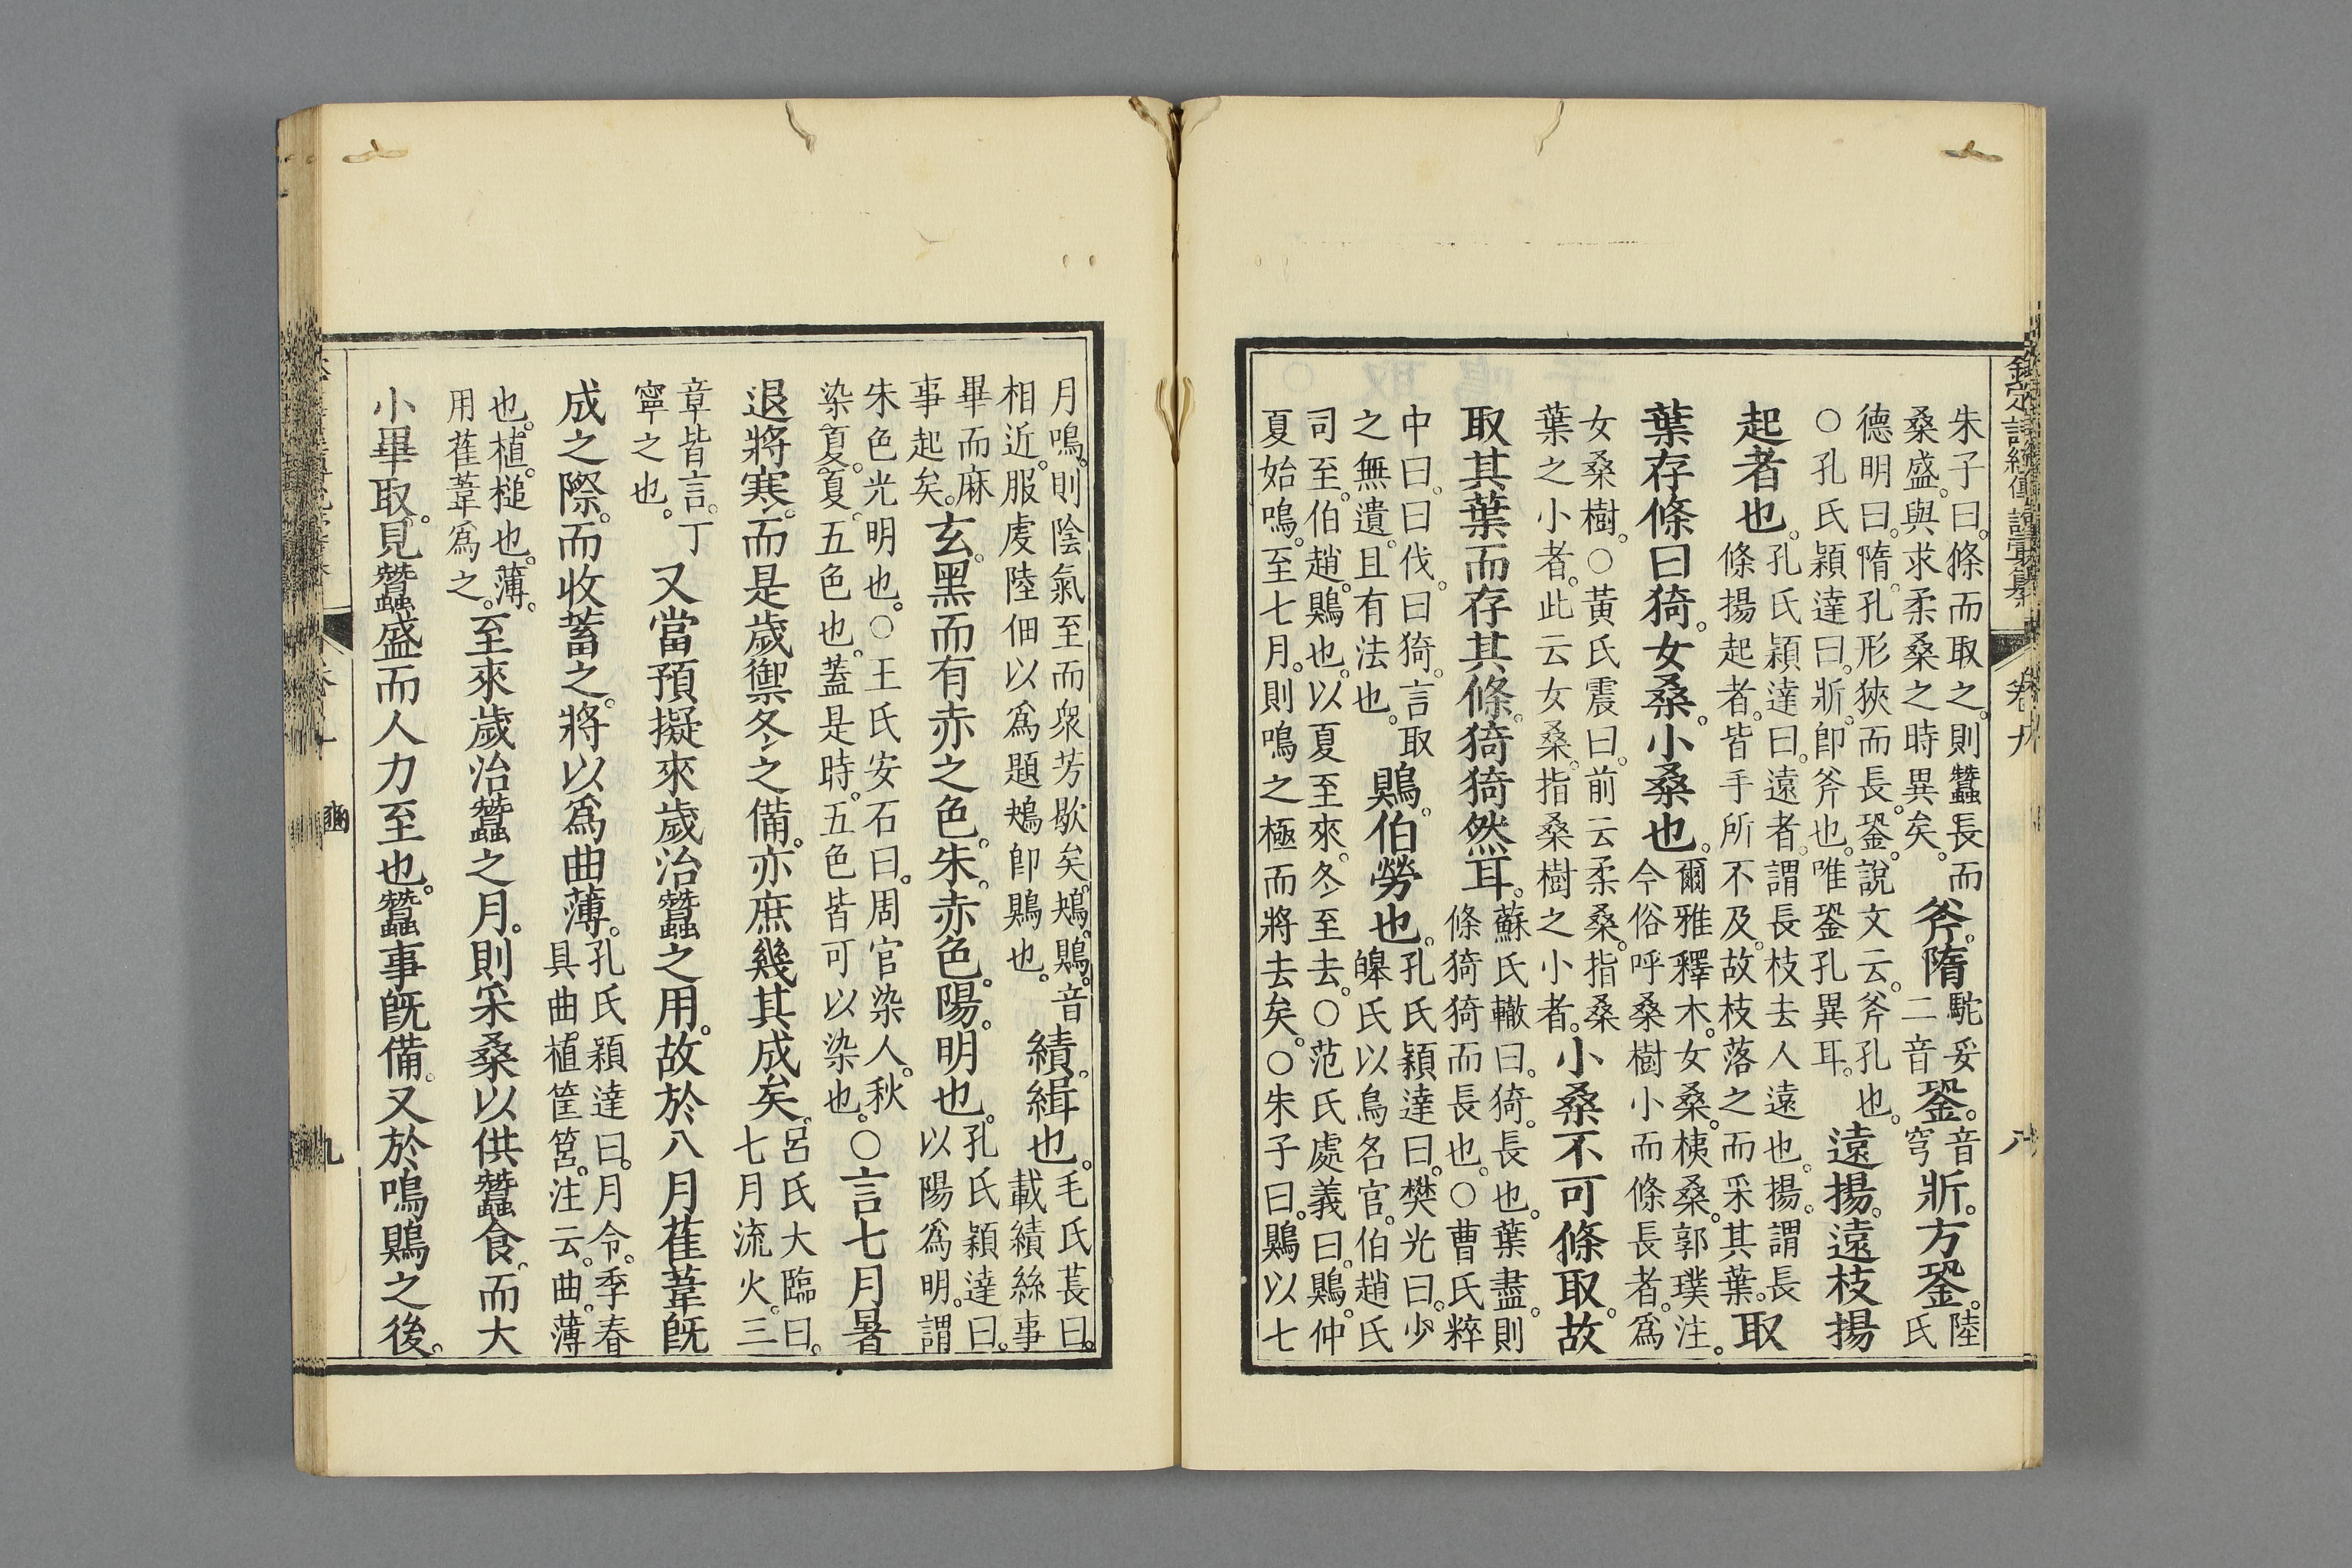 欽定詩經傳說彙纂 卷九 八
朱子曰。條而取之。則蠶長而
桑盛。與求柔桑之時異矣。
斧。隋
駝妥
二音
銎。
音
穹
斨。方銎。
陸
氏
德明曰。隋。孔形狹而長。銎。說文云。斧孔也。
○孔氏穎達曰。斨。卽斧也。唯銎孔異耳。
遠揚。遠枝揚
起者也。
孔氏穎達曰。遠者。謂長枝去人遠也。揚。謂長
條揚起者。皆手所不及。故枝落之而采其葉。
取
葉存條曰猗。女桑。小桑也。
爾雅釋木。女桑。桋桑。郭璞注。
今俗呼桑樹小而條長者。爲
女桑樹。○黃氏震曰。前云柔桑。指桑
葉之小者。此云女桑。指桑樹之小者。
小桑不可條取。故
取其葉而存其條。猗猗然耳。
蘇氏轍曰。猗。長也。葉盡。則
條猗猗而長也。○曹氏粹
中曰。曰伐。曰猗。言取
之無遺。且有法也。
鵙。伯勞也。
孔氏穎達曰。樊光曰。少
皞氏以鳥名官。伯趙氏
司至。伯趙。鵙也。以夏至來。冬至去。○范氏處義曰。鵙。仲
夏始鳴。至七月。則鳴之極而將去矣。○朱子曰。鵙以七
月鳴。則陰氣至而衆芳歇矣。鴂。鵙。音
相近。服虔陸佃以爲題鴂卽鵙也。
績。緝也。
毛氏萇曰。
載績絲事
畢而麻
事起矣。
玄。黑而有赤之色。朱。赤色。陽。明也。
孔氏穎達曰。
以陽爲明。謂
朱色光明也。○王氏安石曰。周官染人。秋
染夏。夏。五色也。蓋是時。五色皆可以染也。
○言七月暑
退將寒。而是歲禦冬之備。亦庶幾其成矣。
呂氏大臨曰。
七月流火。三
章皆言。丁
寧之也。
又當預擬來歲治蠶之用。故於八月萑葦旣
成之際。而收蓄之。將以爲曲薄。
孔氏穎達曰。月令。季春
具曲植筐筥。注云。曲。薄
也。植。槌也。薄。
用萑葦爲之。
至來歲治蠶之月。則采桑以供蠶食。而大
小畢取。見蠶盛而人力至也。蠶事旣備。又於鳴鵙之後。
豳 九